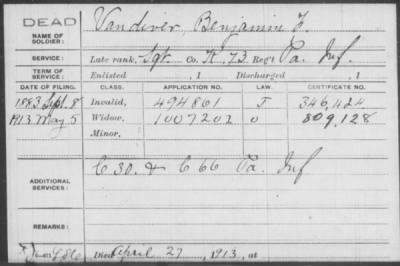 DEAD
NAME OF SOLDIER: Vandiver, Benjamin F.
SERVICE: Late rank, Sgt. Co. K, 73 Reg't Pa. Inf.
TERM OF SERVICE: Enlisted , 1 Discharged , 1
DATE OF FILING. CLASS. APPLICATION NO. LAW. CERTIFICATE NO.
1883 Sept. 8 Invalid, 494861 J 346,424
1913 May 5 Widow, 1007202 O 809,128
Minor,
ADDITIONAL SERVICES: C 30. & C 66 Pa. Inf
REMARKS:
Died April 27, 1913, at